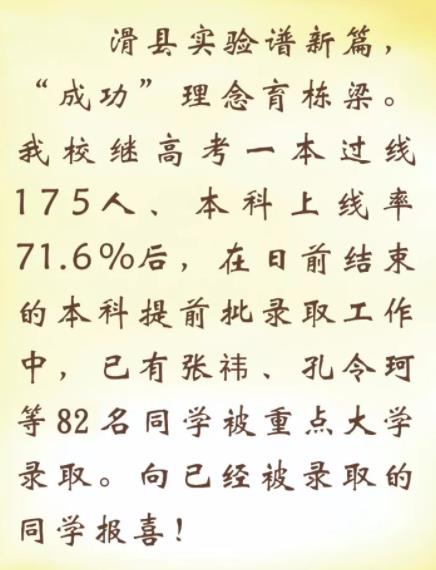 滑县实验谱新篇，
“成功”理念育栋梁。
我校继高考一本过线
175人、本科上线率
71.6%后，在日前结束
的本科提前批录取工作
中，已有张祎、孔令珂
等82名同学被重点大学
录取。向已经被录取的
同学报喜！